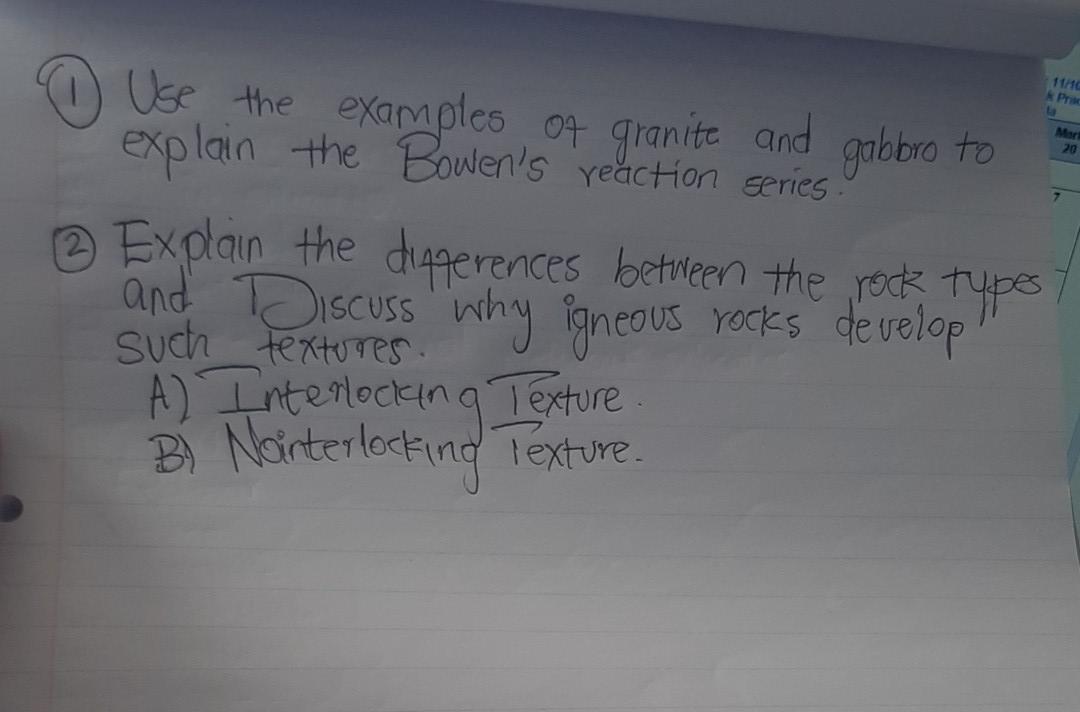 ① Use the examples of granite and gabbro to
explain the Bowen's reaction series.
② Explain the differences between the rock types
and Discuss why igneous rocks develop
such textures.
A) Interlocking Texture.
B) Nointerlocking Texture.
11/10
Mar
20
7